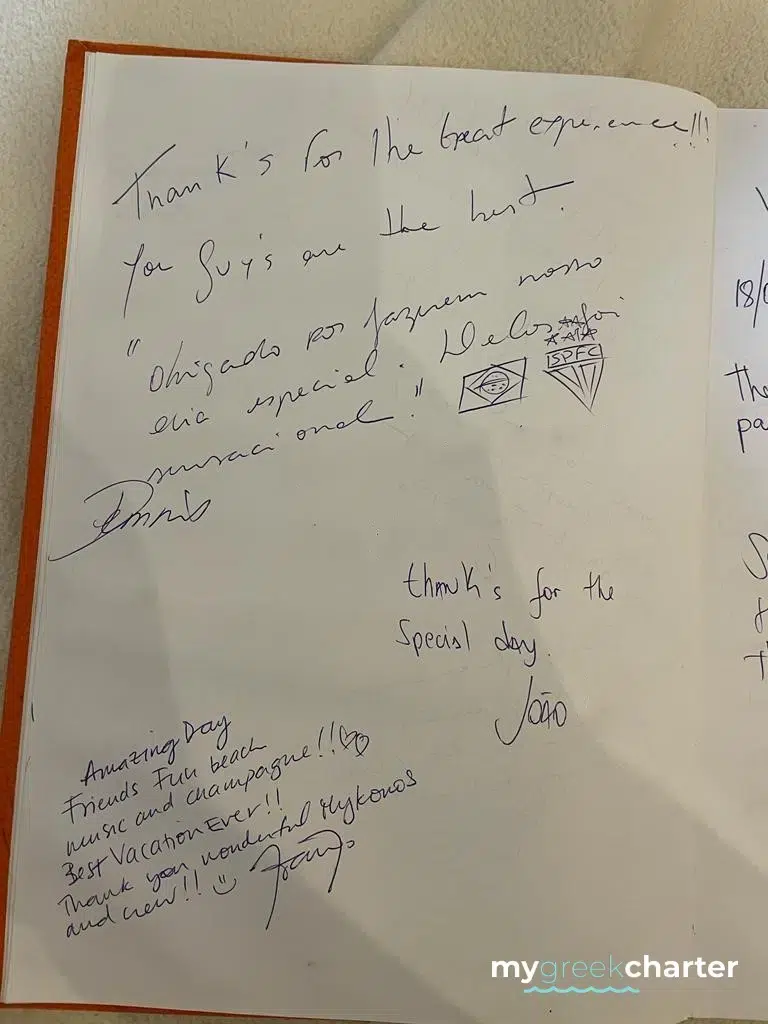 Thank's for the Great experience!!!
You Guy's are the best.
"Obrigado por fazerem nosso
dia especial. Delos foi
SPFC
sensacional."
Dennis
thank's for the
Special day.
João
Amazing Day
Friends Fun beach
music and champagne!!
Best Vacation Ever!!
Thank you wonderful Mykonos
and crew!!
18/0
The
pa
mygreekcharter